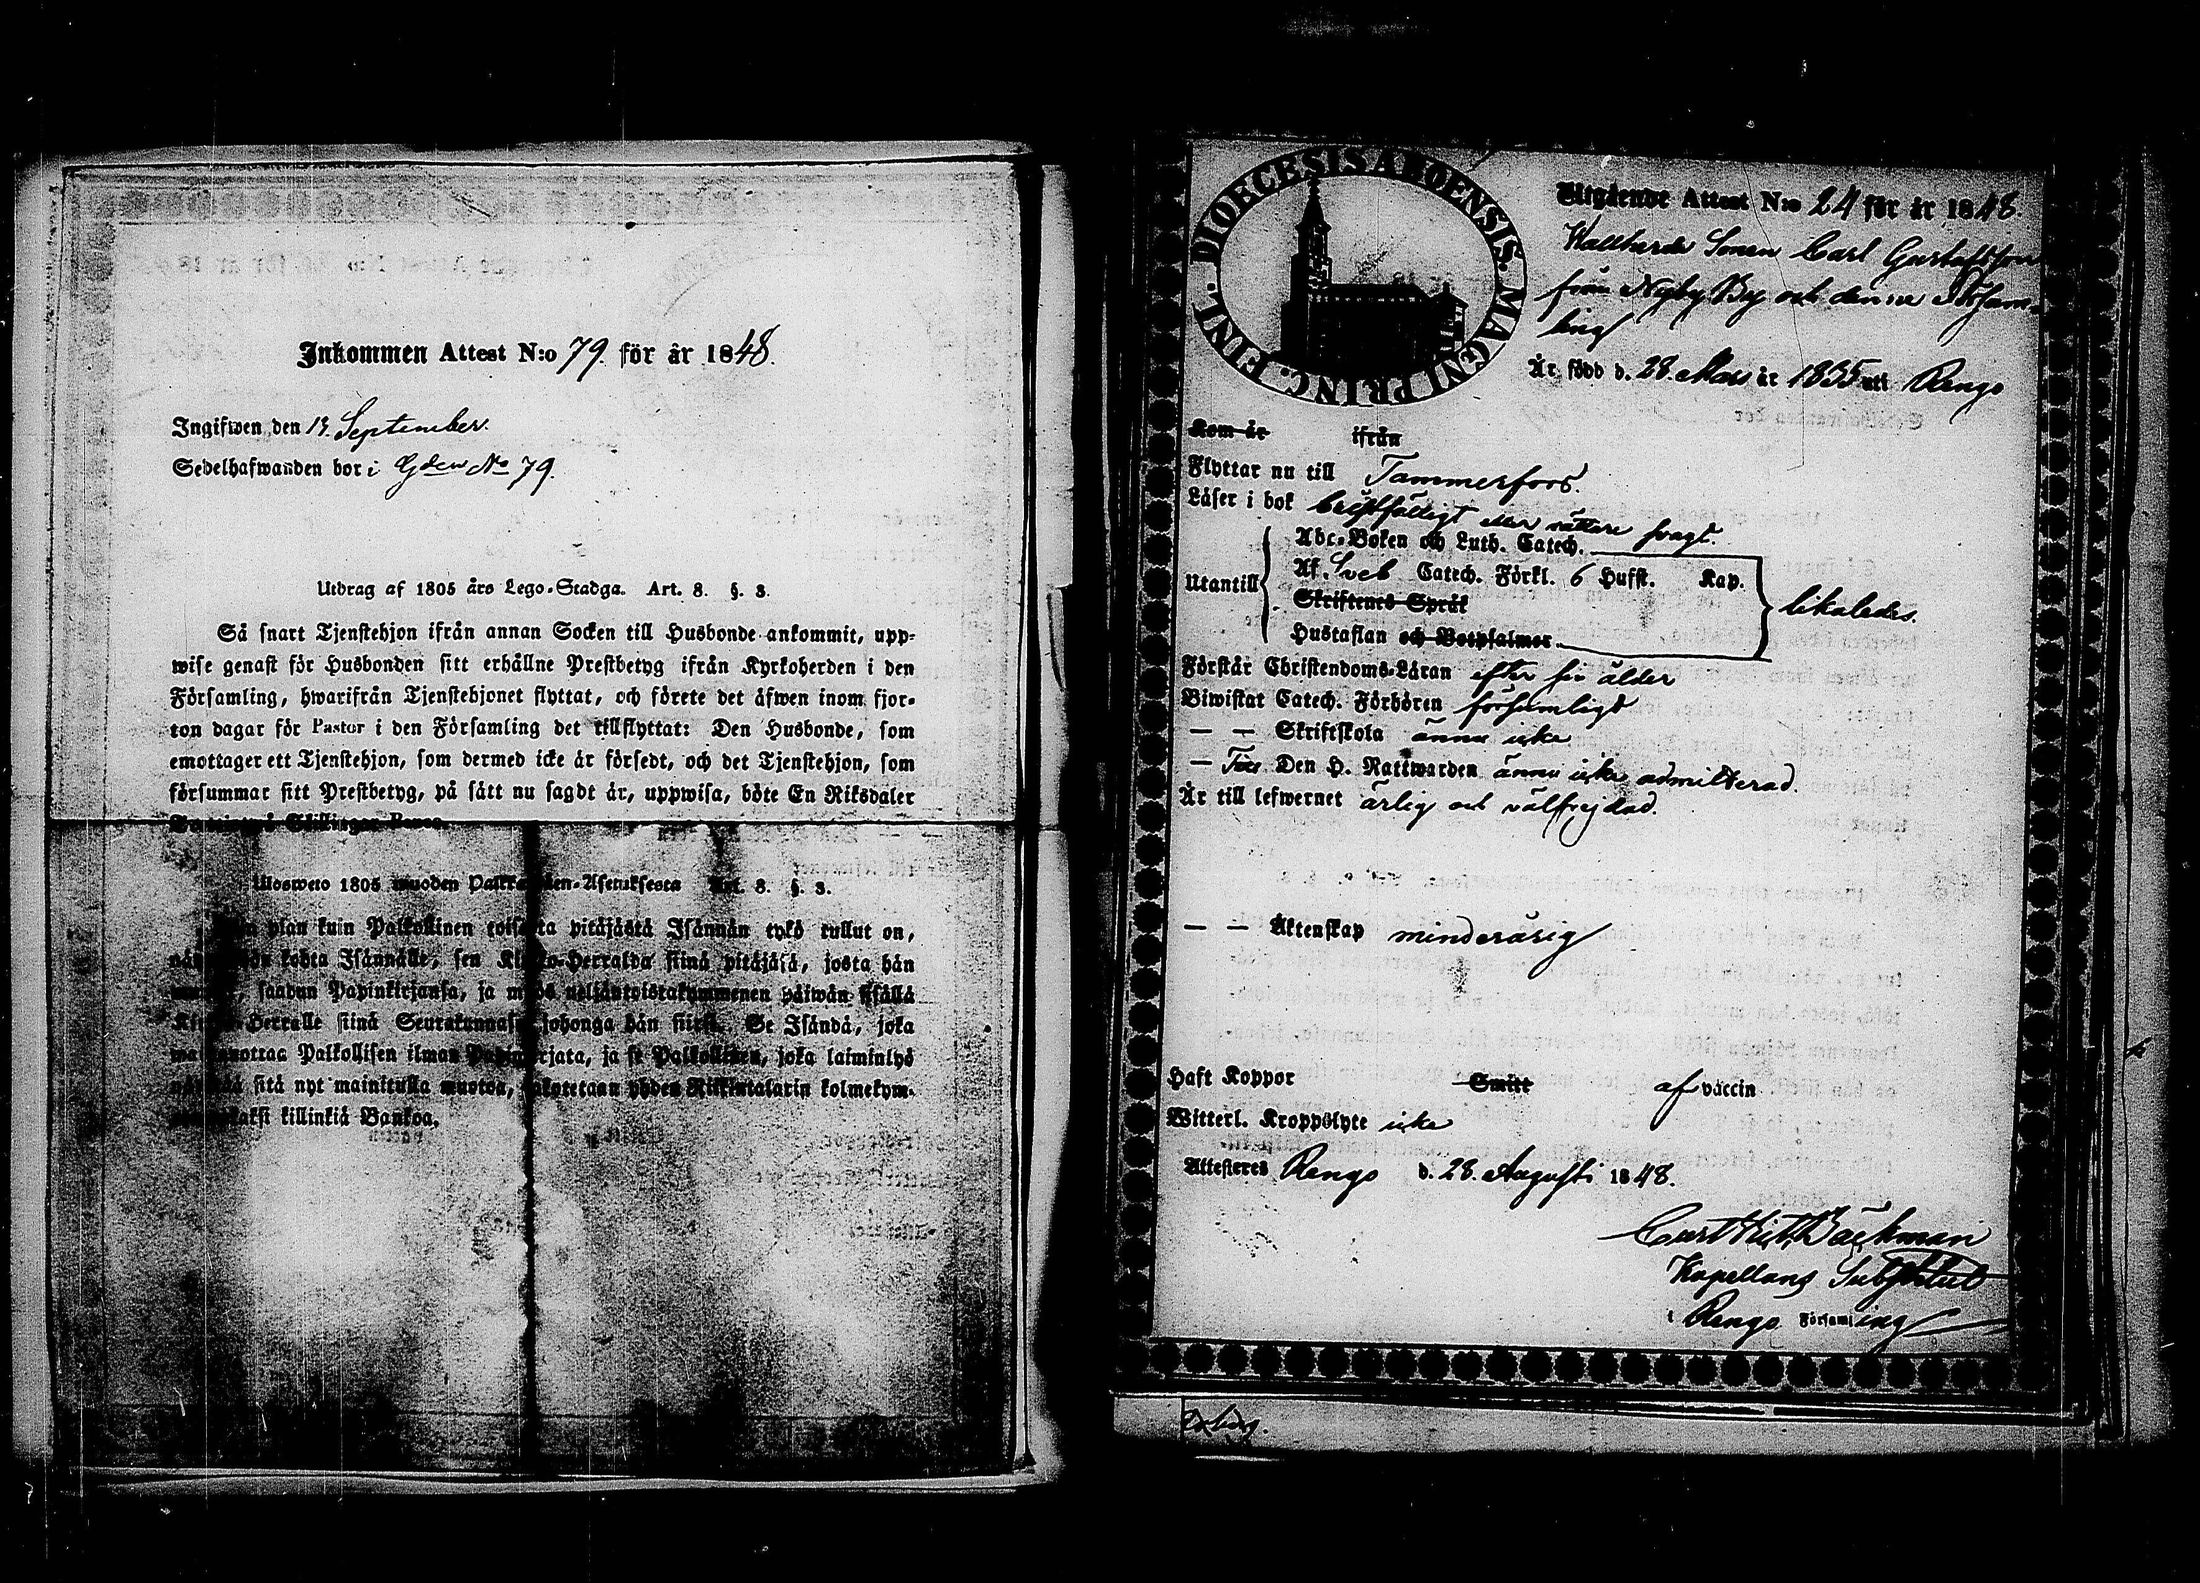 Inkommen Attest N:o 79. för år 1848.
Ingifwen den 13. September.
Sedelhafwanden bor i Gden No 79.
Utdrag af 1805 års Lego-Stadga. Art. 8. §. 3.
Så snart Tjenstehjon ifrån annan Socken till Husbonde ankommit, upp-
wise genast för Husbonden sitt erhållne Prestbetyg ifrån Kyrkoherden i den
Församling, hwarifrån Tjenstehjonet flyttat, och förete det äfwen inom fjor-
ton dagar för Pastor i den Församling det tillflyttat: Den Husbonde, som
emottager ett Tjenstehjon, som dermed icke är försedt, och det Tjenstehjon, som
försummar sitt Prestbetyg, på sätt nu sagdt är, uppwisa, böte En Riksdaler
Ulosweto 1805 wuoden Art. 8. §. 3.
plan kuin Palkollinen toisesta pitäjästä Isännän tykö tullut on,
kohta Isännälle, sen Kirkko-Herralda siinä pitäjäsä, josta hän
saadun Papinkirjansa, ja myös neljäntoistakymmenen päiwän sisällä
Herralle siinä Seurakunnasa, johonga hän siirsi. Se Isändä, joka
wastanottaa Palkollisen ilman Papinkirjata, ja se Palkollinen, joka laiminlyö
sitä nyt mainitulla muotoa, yhden Riksintalarin kolmekym-
killinkiä Bankoa.
DIOECESIS ABOENSIS. MAGNI PRINC. FINL.
Utgående Attest N:o 24 för år 1848.
Sonen Carl Gustafsson
från Nyby By och denne Församl-
ing
Är född d. 28. Mars år 1835 uti Rengo
Kom år ifrån
Flyttar nu till Tammerfors.
Läser i bok eller rättare svagt.
Utantill
Abc-Boken och Luth. Catech.
Af. Sveb Catech. Förkl. 6 Hufst. Kap.
Skriftenes Språk
Hustaflan och Botpsalmer
likaledes.
Förstår Christendoms-Läran efter sin ålder
Biwistat Catech. Förhören församligt
— — Skriftskola ännu icke
— Den H. Nattwarden ännu icke admitterad.
Är till lefwernet ärlig och välfrejdad.
— — Äktenskap minderårig
Haft Koppor Smitt af vaccin
Witterl. Kroppslyte icke
Attesteras Rengo d. 28. Augusti 1848.
Bäckman
Kapellans Subst
i Rengo Församling